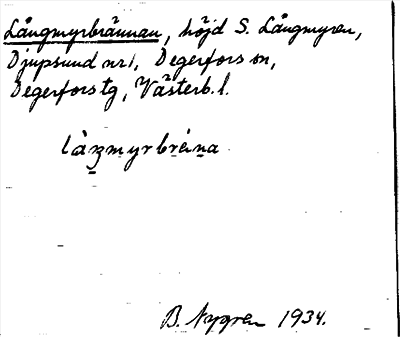 Långmyrbrännan, höjd S. Långmyren,
Djupsund nr 1, Degerfors sn,
Degerfors tg, Västerb. l.
làŋmyrbréṇa
B. Nygren 1934.